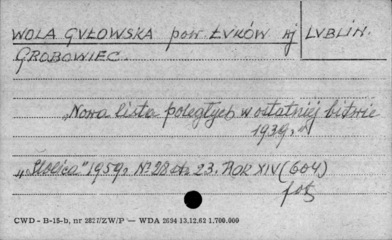 WOLA GUŁOWSKA pow ŁUKÓW wj LUBLIN.
GROBOWIEC.
"Nowa lista poległych w ostatniej bitwie
1939 r."
"Stolica" 1959 r. Nr 28 str 23. ROK XIV (604)
fot
CWD - B-15-b, nr 2821/ZW/P — WDA 2694 13.12.62 1.700.000